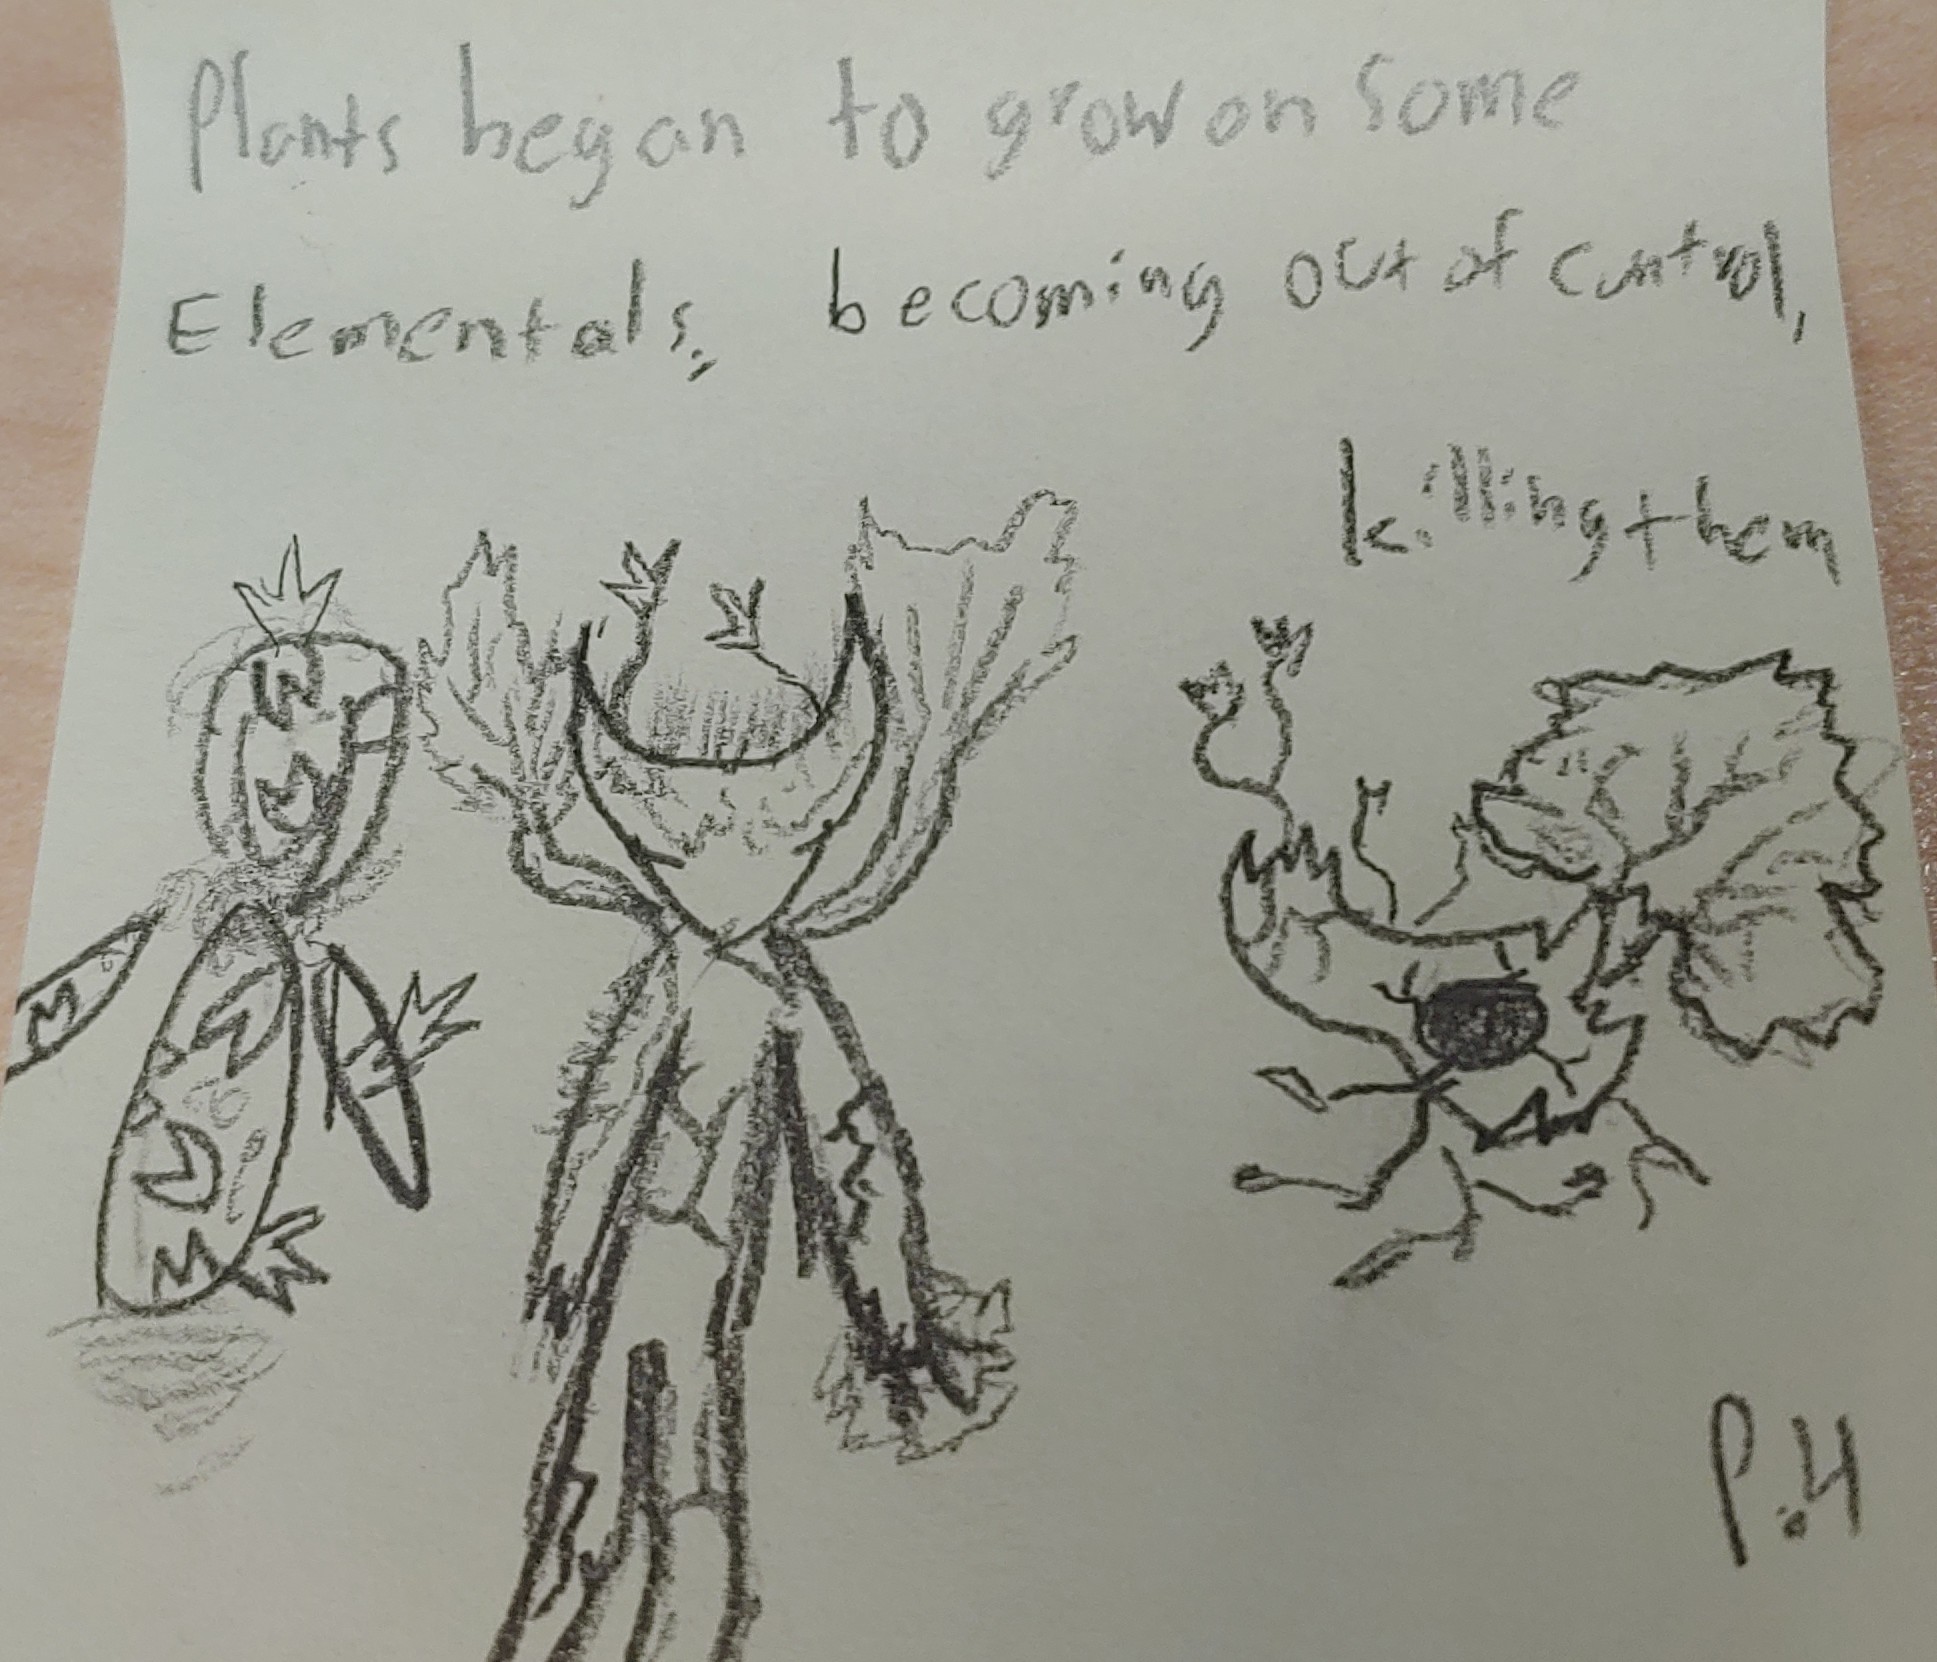 Plants began to grow on some
Elementals, becoming out of control,
killing them
P.4